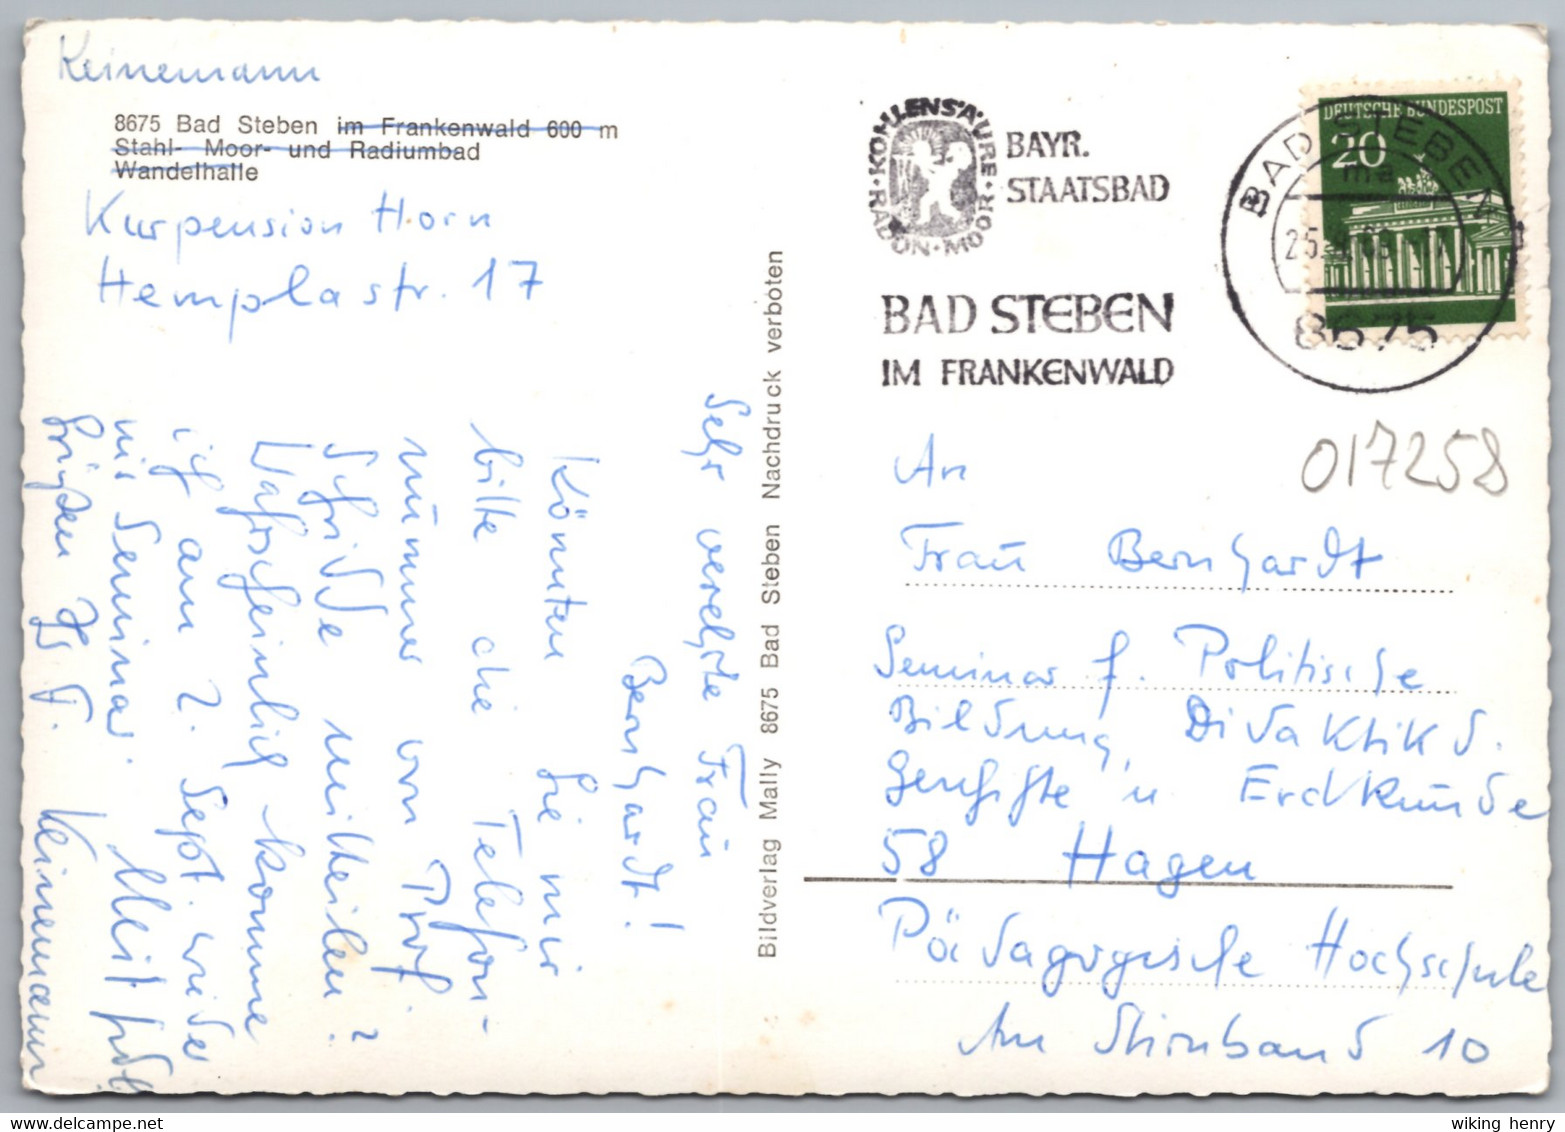 Keinemann
8675 Bad Steben im Frankenwald 600 m
Stahl- Moor- und Radiumbad
Wandelhalle
Kurpension Horn
Hemplastr. 17
Sehr verehrte Frau
Bernhardt!
Könnten Sie mir
bitte die Telefon-
nummer von Prof.
Schridde mitteilen?
Wahrscheinlich komme
ich am 2. Sept. wieder
ins Seminar. Mit frdl.
Grüßen Ihr F. Keinemann
Bildverlag Mally 8675 Bad Steben Nachdruck verboten
KOHLENSÄURE · MOOR · RADON ·
BAYR.
STAATSBAD
BAD STEBEN
IM FRANKENWALD
DEUTSCHE BUNDESPOST
20
BAD STEBEN
ma
8675
017258
An
Frau Bernhardt
Seminar f. Politische
Bildung, Didaktik d.
Geschichte u Erdkunde
58 Hagen
Pädagogische Hochschule
Am Stirnband 10
wiking henry